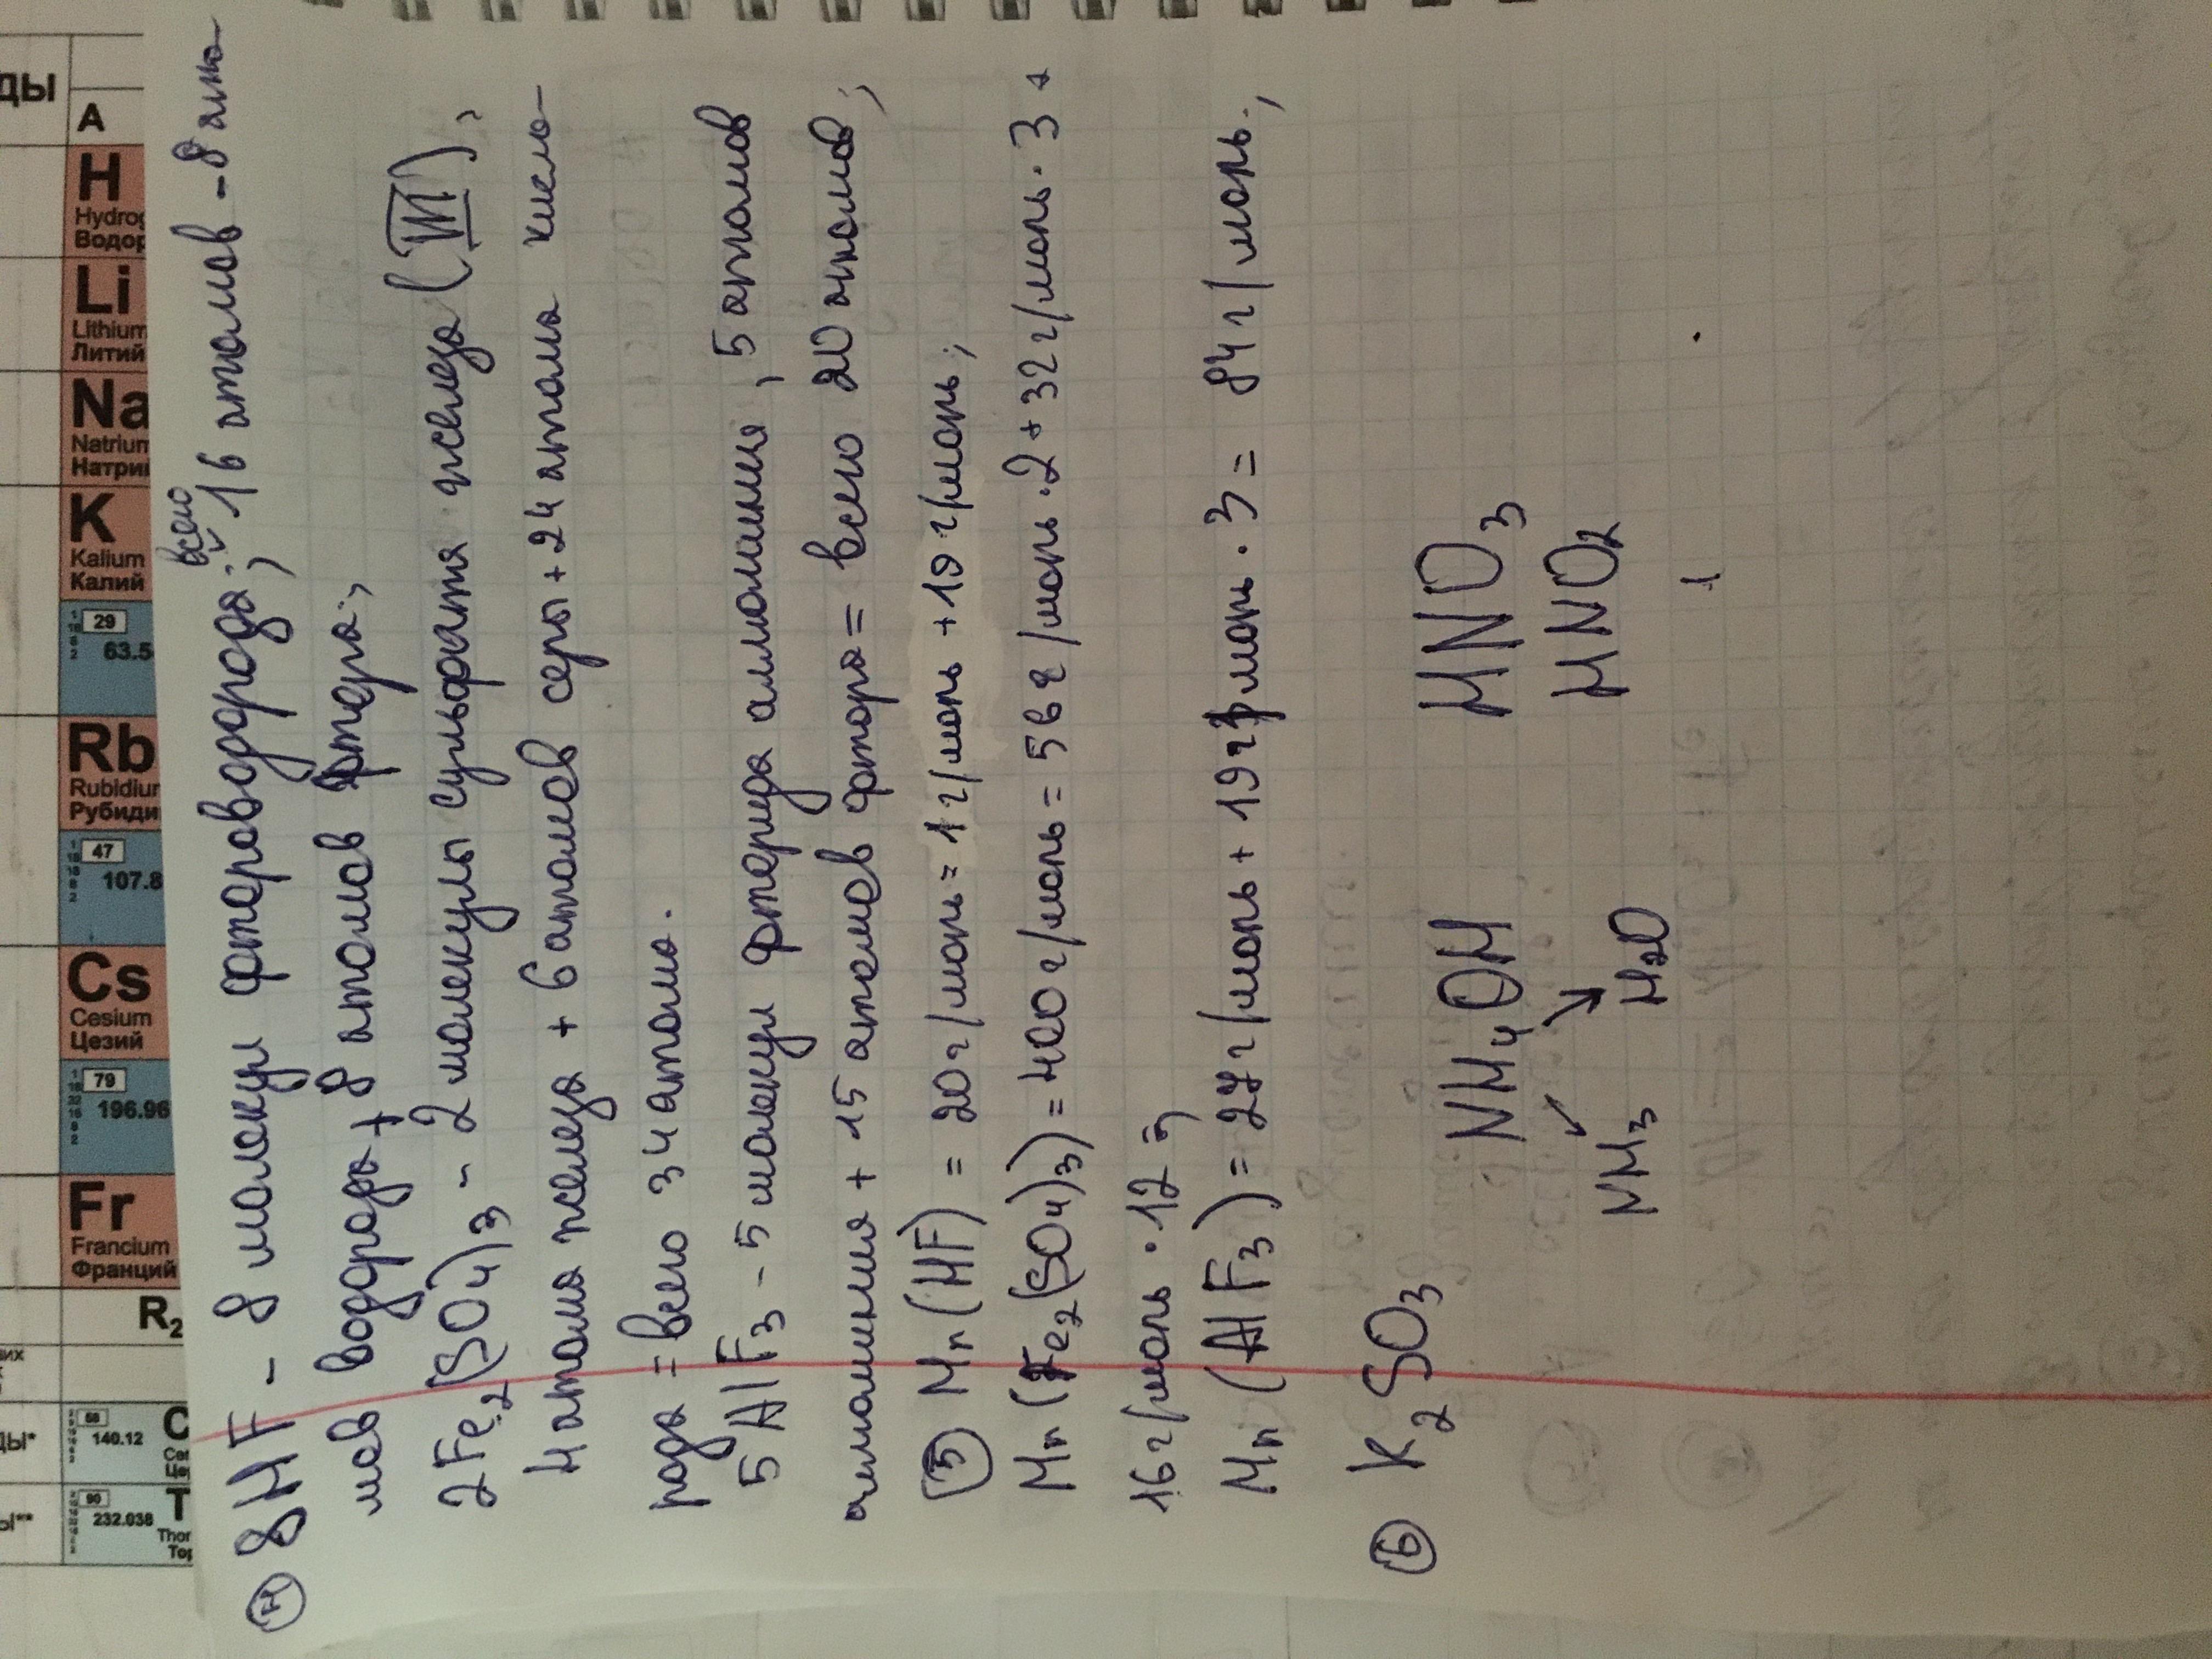 ④ 8HF - 8 молекул фтороводорода; всего: 16 атомов - 8 ато-
мов водорода + 8 атомов фтора;
2Fe₂(SO₄)₃ - 2 молекулы сульфата железа (III),
4 атома железа + 6 атомов серы + 24 атома кисло-
рода = всего 34 атома.
5AlF₃ - 5 молекул фторида алюминия, 5 атомов
алюминия + 15 атомов фтора = всего 20 атомов;
⑤ Mr(HF) = 20 г/моль = 1 г/моль + 19 г/моль;
Mr(Fe₂(SO₄)₃) = 400 г/моль = 56 г/моль · 2 + 32 г/моль · 3 +
16 г/моль · 12 =;
Mr(AlF₃) = 27 г/моль + 19 г/моль · 3 = 84 г/моль.;
⑥ K₂SO₃ NH₄OH HNO₃
NH₃ H₂O HNO₂
ДЫ
A
H
Hydrog
Водор
Li
Lithium
Литий
Na
Natrium
Натри
K
Kalium
Калий
29
63.5
Rb
Rubidiur
Рубиди
47
107.8
Cs
Cesium
Цезий
79
196.96
Fr
Francium
Франций
R₂
их
ДЫ*
58
140.12
C
Cer
Це
Ы**
90
232.038
T
Thor
Тор